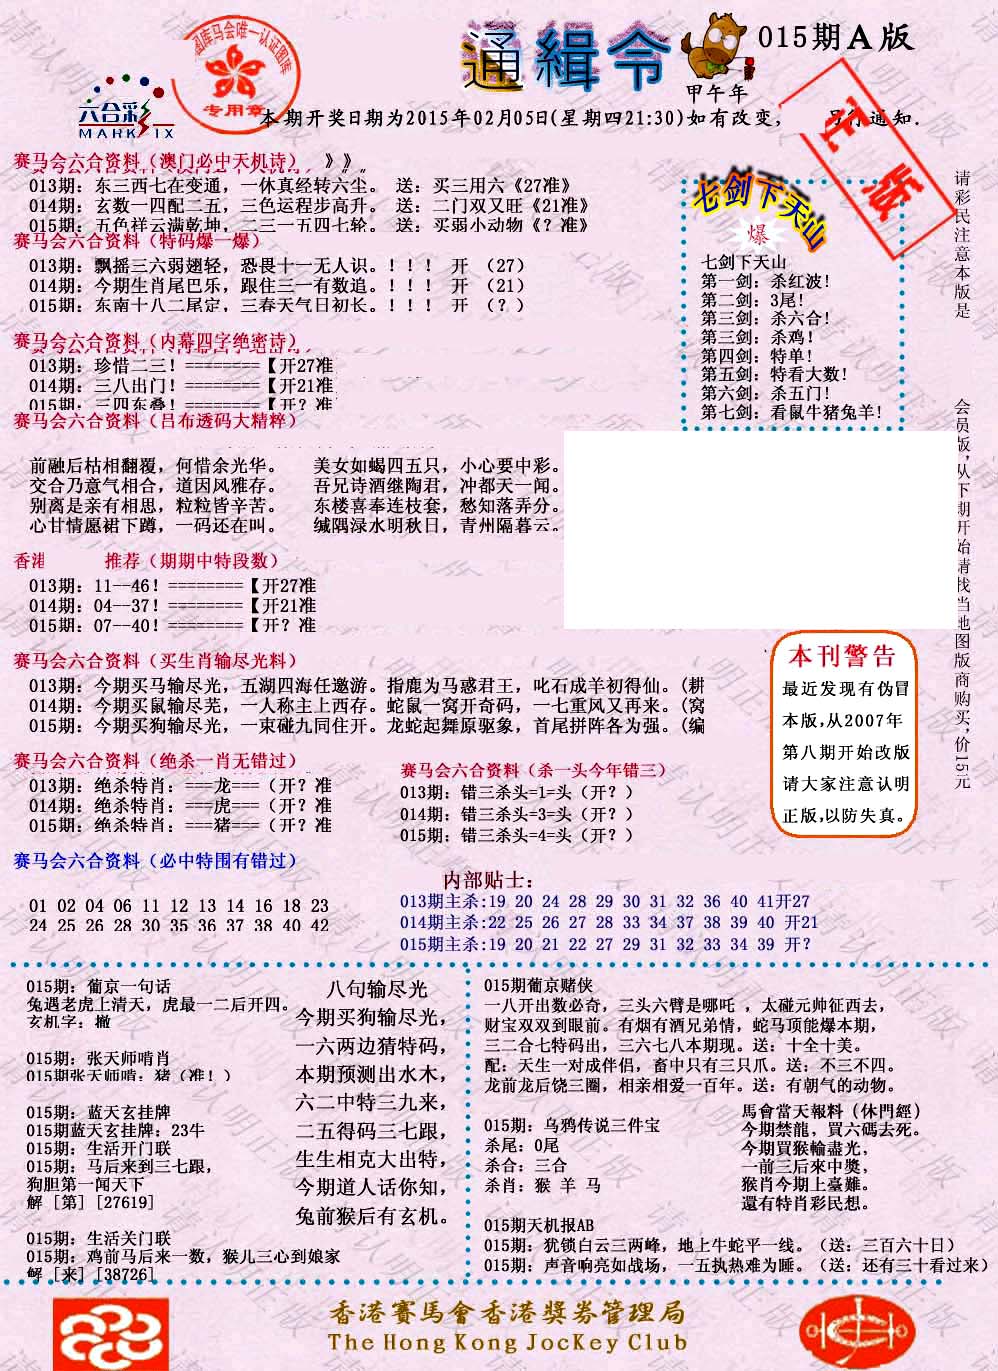 通緝令
015期A版
甲午年
六合彩
MARK SIX
库马会唯一认证图库
专用章
正版
本期开奖日期为2015年02月05日(星期四21:30)如有改变，
另行通知.
赛马会六合资料（澳门必中天机诗） 》》
013期：东三西七在变通，一休真经转六尘。 送：买三用六《27准》
014期：玄数一四配二五，三色运程步高升。 送：二门双又旺《21准》
015期：五色祥云满乾坤，二三一五四七轮。 送：买弱小动物《？准》
赛马会六合资料（特码爆一爆）
013期：飘摇三六弱翅轻，恐畏十一无人识。！！！ 开 （27）
014期：今期生肖尾巴乐，跟住三一有数追。！！！ 开 （21）
015期：东南十八二尾定，三春天气日初长。！！！ 开 （？）
赛马会六合资料（内幕四字绝密诗）
013期：珍惜二三！========【开27准
014期：三八出门！========【开21准
015期：三四东叠！========【开？准
赛马会六合资料（吕布透码大精粹）
前融后枯相翻覆，何惜余光华。 美女如蝎四五只，小心要中彩。
交合乃意气相合，道因风雅存。 吾兄诗酒继陶君，冲都天一闻。
别离是亲有相思，粒粒皆辛苦。 东楼喜奉连枝套，愁知落弄分。
心甘情愿裙下蹲，一码还在叫。 缄隅渌水明秋日，青州隔暮云。
香港 推荐（期期中特段数）
013期：11--46！========【开27准
014期：04--37！========【开21准
015期：07--40！========【开？准
赛马会六合资料（买生肖输尽光料）
013期：今期买马输尽光，五湖四海任邀游。指鹿为马惑君王，叱石成羊初得仙。(耕
014期：今期买鼠输尽芜，一人称主上西存。蛇鼠一窝开奇码，一七重风又再来。(窝
015期：今期买狗输尽光，一束碰九同住开。龙蛇起舞原驱象，首尾拼阵各为强。(编
赛马会六合资料（绝杀一肖无错过）
013期：绝杀特肖：===龙===（开？准
014期：绝杀特肖：===虎===（开？准
015期：绝杀特肖：===猪===（开？准
赛马会六合资料（杀一头今年错三）
013期：错三杀头=1=头（开？）
014期：错三杀头=3=头（开？）
015期：错三杀头=4=头（开？）
赛马会六合资料（必中特围有错过）
01 02 04 06 11 12 13 14 16 18 23
24 25 26 28 30 35 36 37 38 40 42
内部贴士:
013期主杀:19 20 24 28 29 30 31 32 36 40 41开27
014期主杀:22 25 26 27 28 33 34 37 38 39 40 开21
015期主杀:19 20 21 22 27 29 31 32 33 34 39 开?
七剑下天山
爆
七剑下天山
第一剑：杀红波!
第二剑：3尾!
第三剑：杀六合!
第三剑：杀鸡!
第四剑：特单!
第五剑：特看大数!
第六剑：杀五门!
第七剑：看鼠牛猪兔羊!
请彩民注意本版是
会员版，从下期开始请找当地图版商购买，价15元
本刊警告
最近发现有伪冒
本版,从2007年
第八期开始改版
请大家注意认明
正版,以防失真。
015期：葡京一句话
兔遇老虎上清天，虎最一二后开四。
玄机字：撤
015期：张天师啃肖
015期张天师啃：猪（准！）
015期：蓝天玄挂牌
015期蓝天玄挂牌：23牛
015期：生活开门联
015期：马后来到三七跟，
狗胆第一闻天下
解 [第] [27619]
015期：生活关门联
015期：鸡前马后来一数，猴儿三心到娘家
解 [来] [38726]
八句输尽光
今期买狗输尽光，
一六两边猜特码，
本期预测出水木，
六二中特三九来，
二五得码三七跟，
生生相克大出特，
今期道人话你知，
兔前猴后有玄机。
015期葡京赌侠
一八开出数必奇，三头六臂是哪吒 ，太碰元帅征西去，
财宝双双到眼前。有烟有酒兄弟情，蛇马顶能爆本期，
三二合七特码出，三六七八本期现。送：十全十美。
配：天生一对成伴侣，畜中只有三只爪。送：不三不四。
龙前龙后饶三圈，相亲相爱一百年。送：有朝气的动物。
015期：乌鸦传说三件宝
杀尾：0尾
杀合：三合
杀肖：猴 羊 马
馬會當天報料（休門經）
今期禁龍，買六碼去死。
今期買猴輸盡光，
一前三后來中獎，
猴肖今期上臺難。
還有特肖彩民想。
015期天机报AB
015期：犹锁白云三两峰，地上牛蛇平一线。（送：三百六十日）
015期：声音响亮如战场，一五执热难为睡。（送：还有三十看过来）
香港賽馬會香港獎券管理局
The Hong Kong JocKey Club